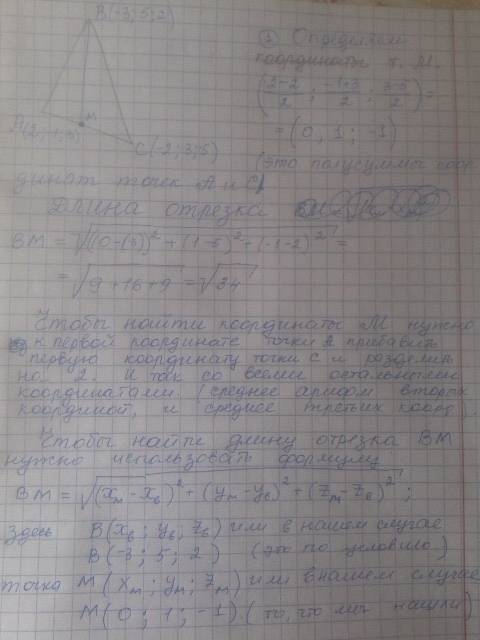 B(-3; 5; 2)
① Определяем
координаты т. M.
(2-2/2 ; -1+3/2 ; 3-5/2) =
= (0, 1; -1)
M
C(-2; 3; -5)
(это полусуммы коор
динат точек A и C)
Длина отрезка
BM = √((0-(-3))² + (1-5)² + (-1-2)²) =
= √(9+16+9) = √34
Чтобы найти координаты M нужно
к первой координате точки A прибавить
первую координату точки C и разделить
на 2. И так со всеми остальными
координатами. (среднее арифм вторых
координат, и среднее третьих коорд).
Чтобы найти длину отрезка BM
нужно использовать формулу
BM = √((xм - xв)² + (yм - yв)² + (zм - zв)²) ;
Здесь B(xв ; yв ; zв) или в нашем случае
B(-3 ; 5 ; 2) (это по условию)
точка M(xм ; yм ; zм) или в нашем случае
M(0 ; 1 ; -1). (то, что мы нашли)